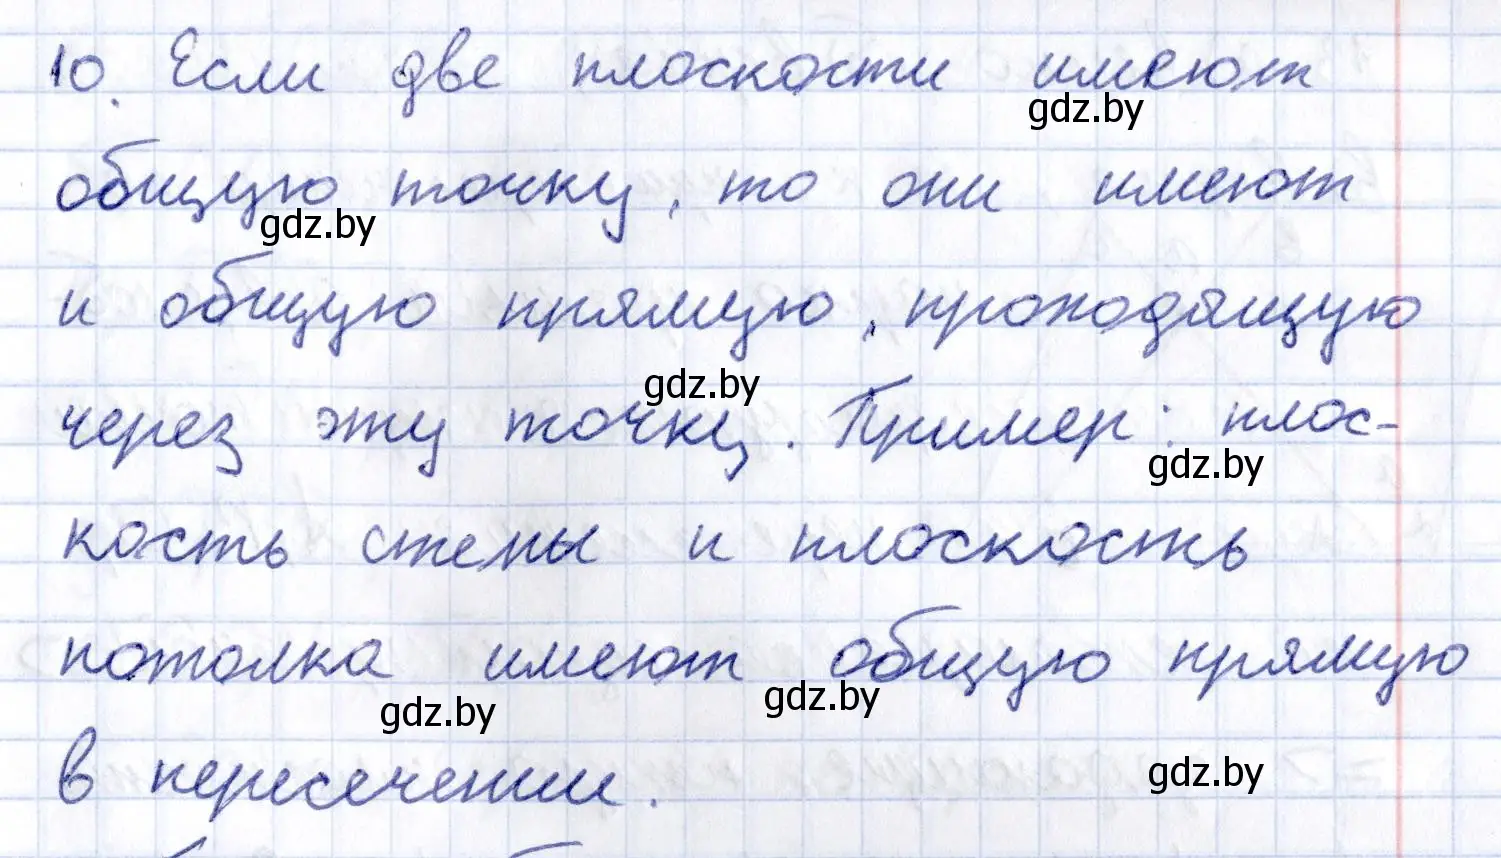 10. Если две плоскости имеют
gdz.by
общую точку, то они имеют
gdz.by
и общую прямую, проходящую
gdz.by
через эту точку. Пример: плос-
gdz.by
кость стены и плоскость
потолка имеют общую прямую
gdz.by
gdz.by
в пересечении.
gdz.by